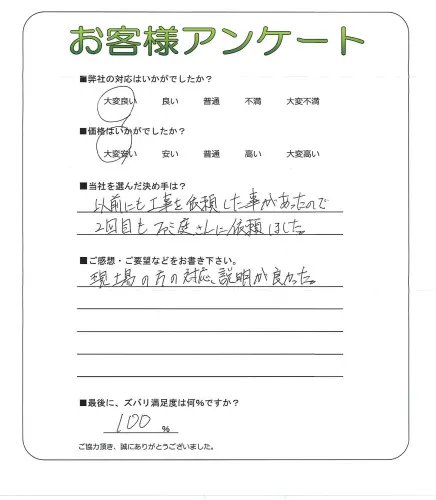 お客様アンケート
■弊社の対応はいかがでしたか?
大変良い 良い 普通 不満 大変不満
■価格はいかがでしたか?
大変安い 安い 普通 高い 大変高い
■当社を選んだ決め手は?
以前にも工事を依頼した事があったので
2回目もファミ庭さんに依頼しました。
■ご感想・ご要望などをお書き下さい。
現場の方の対応、説明が良かった。
■最後に、ズバリ満足度は何%ですか?
100 %
ご協力頂き、誠にありがとうございました。